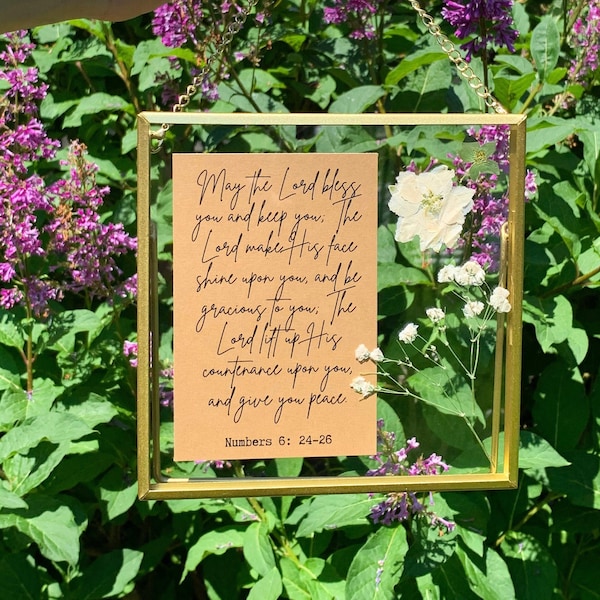 May the Lord bless
you and keep you; The
Lord make His face
shine upon you, and be
gracious to you; The
Lord lift up His
countenance upon you,
and give you peace.
Numbers 6: 24-26